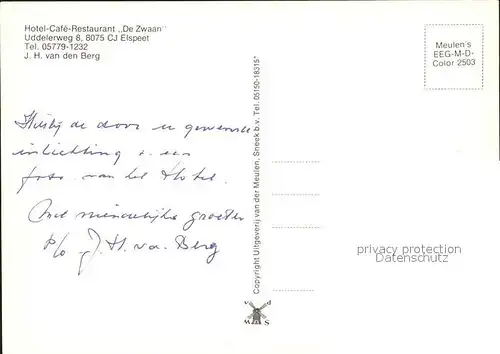 Hotel-Café-Restaurant „De Zwaan"
Uddelerweg 8, 8075 CJ Elspeet
Tel. 05779-1232
J. H. van den Berg
Meulen's
EEG-M-D-
Color 2503
Hierbij de door u gewenste
inlichting + een
foto van het Hotel.
Met vriendelijke groeten
p/o J. H. v.d. Berg
Copyright Uitgeverij van der Meulen, Sneek b.v. Tel. 05150-18315*
privacy protection
Datenschutz
v d
W S